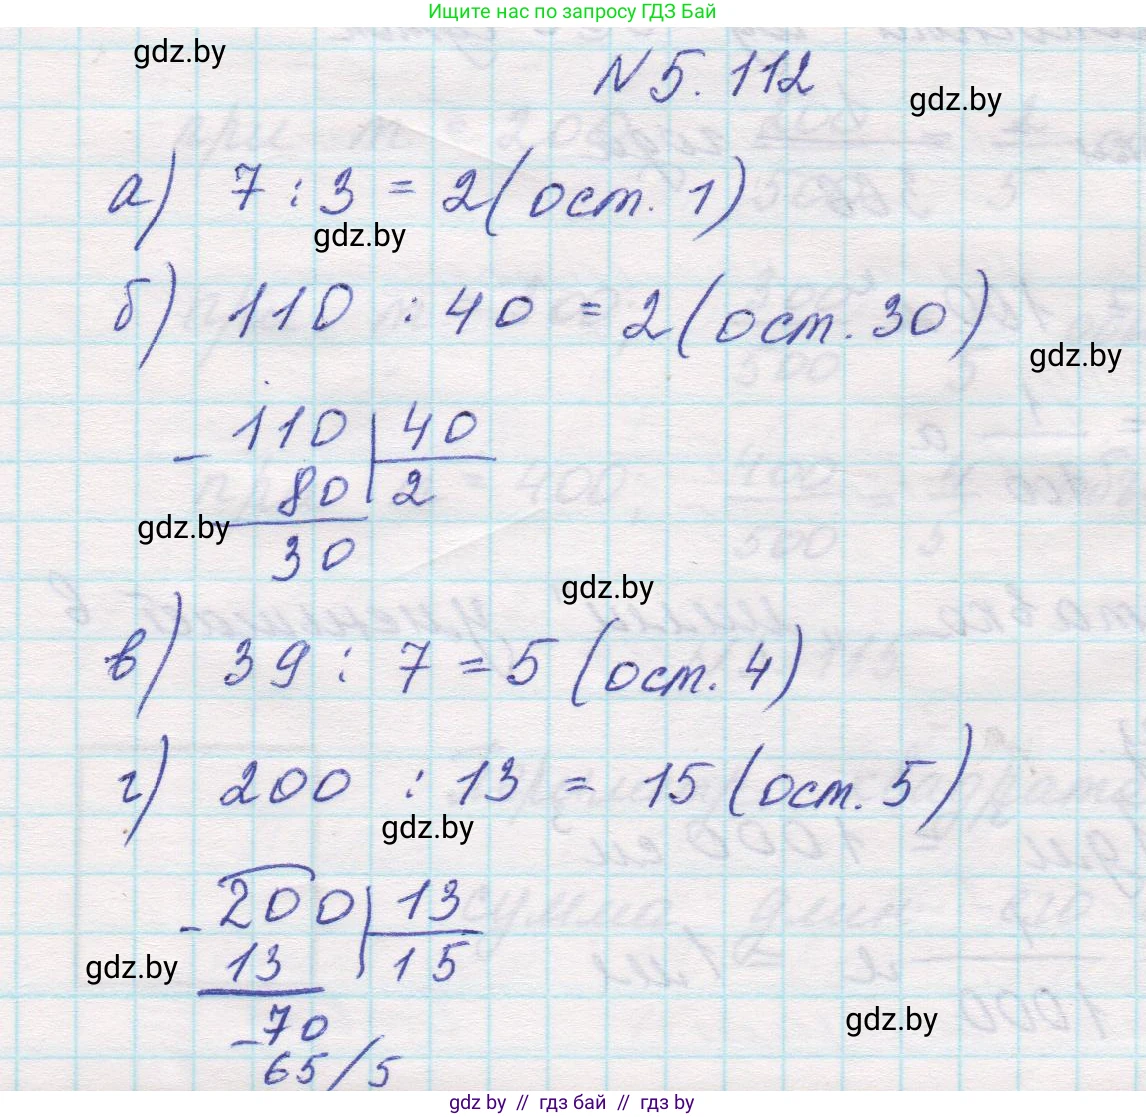 Ищите нас по запросу ГДЗ Бай
gdz.by
N 5.112
gdz.by
а) 7 : 3 = 2 (ост. 1)
gdz.by
б) 110 : 40 = 2 (ост. 30)
gdz.by
110 | 40
- 80 | 2
gdz.by
30
gdz.by
в) 39 : 7 = 5 (ост. 4)
г) 200 : 13 = 15 (ост. 5)
gdz.by
- 200 | 13
gdz.by
13 | 15
gdz.by
- 70
65 / 5
gdz.by // гдз бай // гдз by